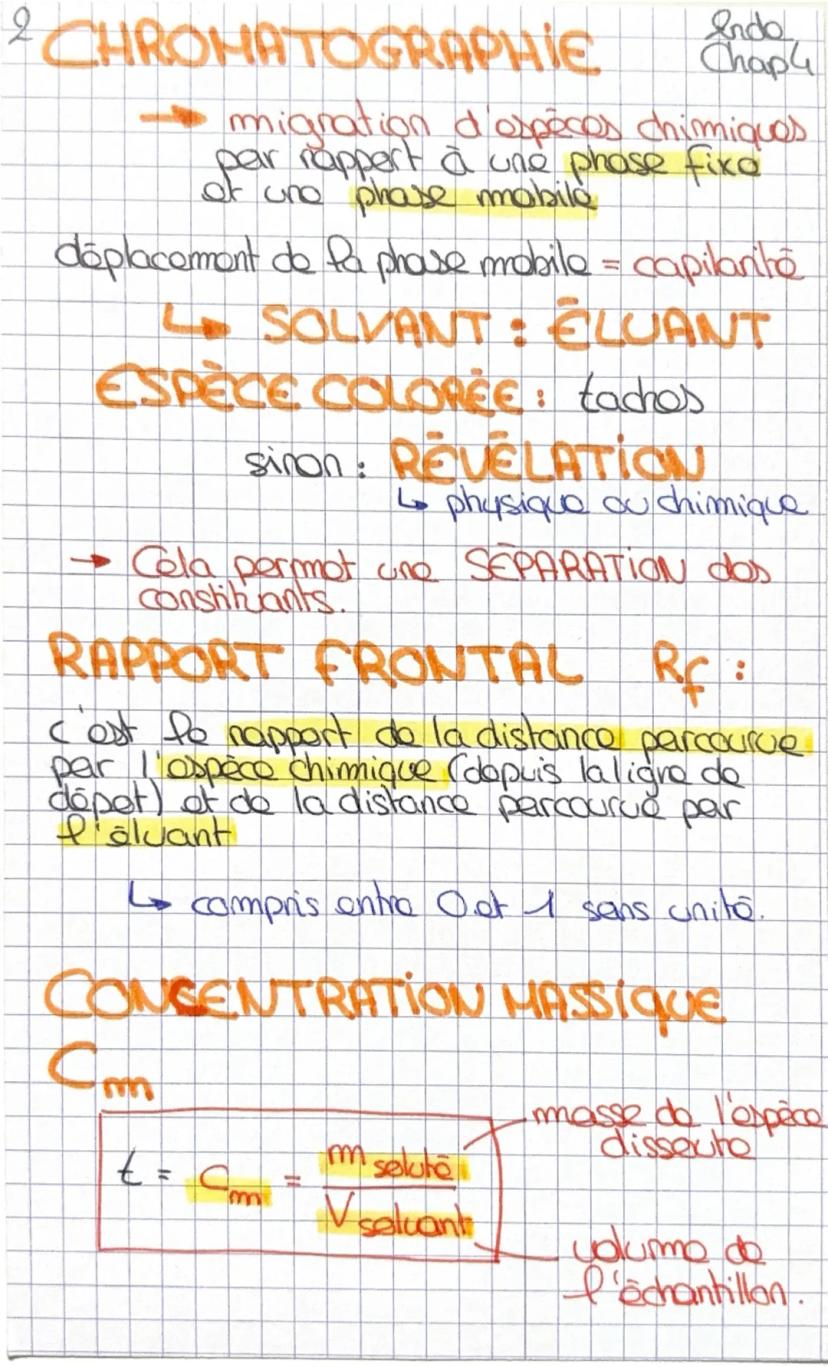 2 CHROMATOGRAPHIE 2nde
Chap 4
→ migration d'espèces chimiques
par rapport à une phase fixe
et une phase mobile
déplacement de la phase mobile = capilarité
↳ SOLVANT : ÉLUANT
ESPÈCE COLORÉE : taches
sinon : RÉVÉLATION
↳ physique ou chimique
→ Cela permet une SÉPARATION des
constituants.
RAPPORT FRONTAL Rf :
c'est le rapport de la distance parcourue
par l'espèce chimique (depuis la ligne de
dépot) et de la distance parcourue par
l'éluant
↳ compris entre 0 et 1 sans unité.
CONCENTRATION MASSIQUE
Cm
t = Cm = m soluté / V solvant
masse de l'espèce
dissoute
volume de
l'échantillon.